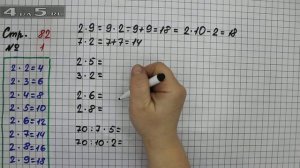 4PO5.RU
Стр. 82
№ 1
2 · 2 = 4
2 · 3 = 6
2 · 4 = 8
2 · 5 = 10
2 · 6 = 12
2 · 7 = 14
2 · 8 = 16
2 · 9 = 18
2 · 9 = 9 · 2 = 9 + 9 = 18 = 2 · 10 - 2 = 18
7 · 2 = 7 + 7 = 14
2 · 5 =
3 · 2 =
2 · 6 =
2 · 8 =
70 : 7 · 5 =
70 : 10 · 2 =